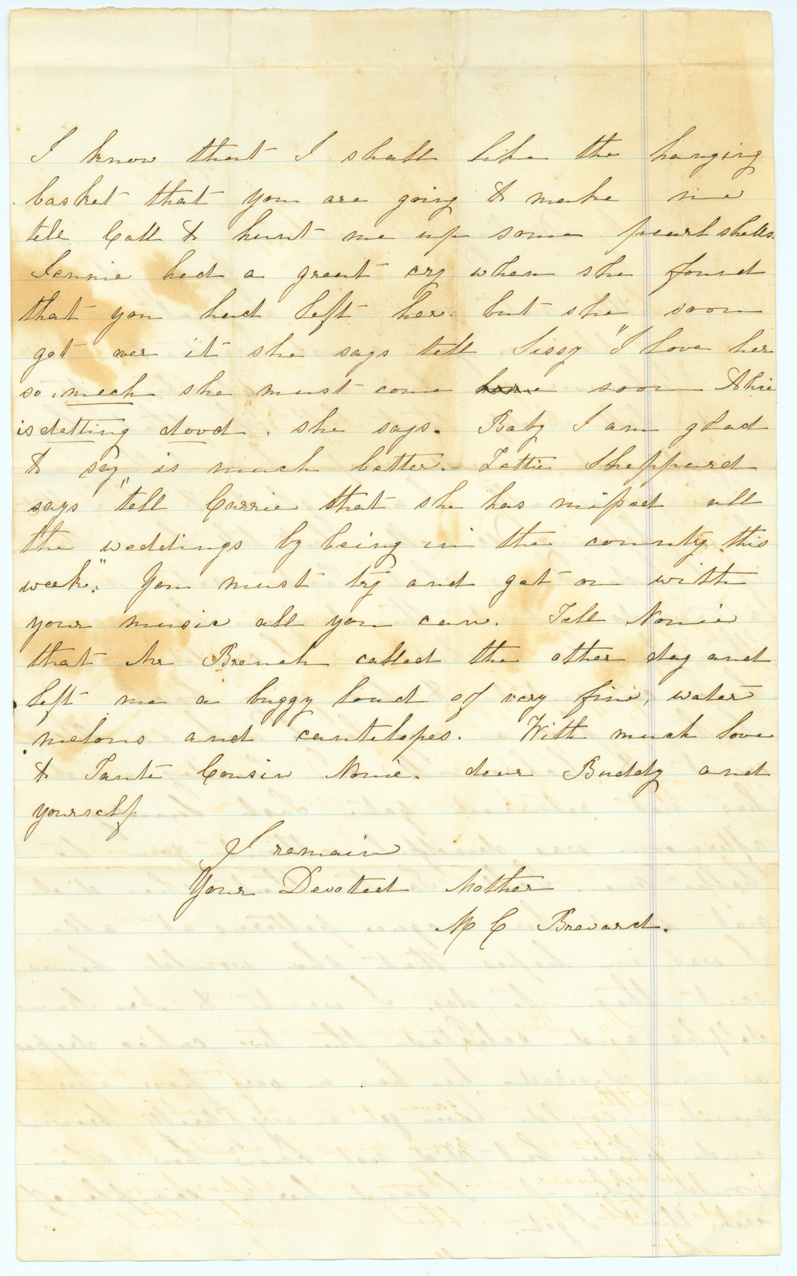 I know that I shall like the hanging
basket that you are going to make me
tell Call to hunt me up some pearl shells.
Jennie had a great cry when she found
that you had left her. but she soon
got over it she says tell Sissy "I love her
so much she must come home soon
is detting dood. she says. Baby I am glad
to say is much better.- Lettie Sheppard
says "tell Carrie that she has missed all
the weddings by being in the country this
week". You must try and get on with
your music all you can. Tell Nonie
that Mr Branch called the other day and
left me a buggy load of very fine, water
melons and cantelopes. With much love
to Tante Cousin Nonie. dear Buddy and
yourself.
I remain
Your Devoted Mother
M C Brevard.